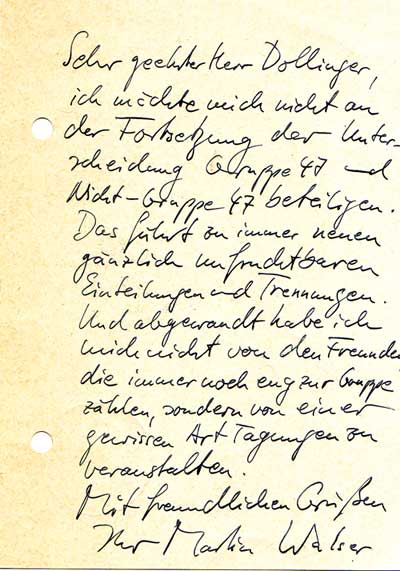 Sehr geehrter Herr Dollinger,
ich möchte mich nicht an
der Fortsetzung der Unter-
scheidung Gruppe 47 und
Nicht-Gruppe 47 beteiligen.
Das führt zu immer neuen
gänzlich unfruchtbaren
Einteilungen und Trennungen.
Und abgewandt habe ich
mich nicht von den Freunden
die immer noch eng zur Gruppe
zählen, sondern von einer
gewissen Art Tagungen zu
veranstalten.
Mit freundlichen Grüßen
Ihr Martin Walser